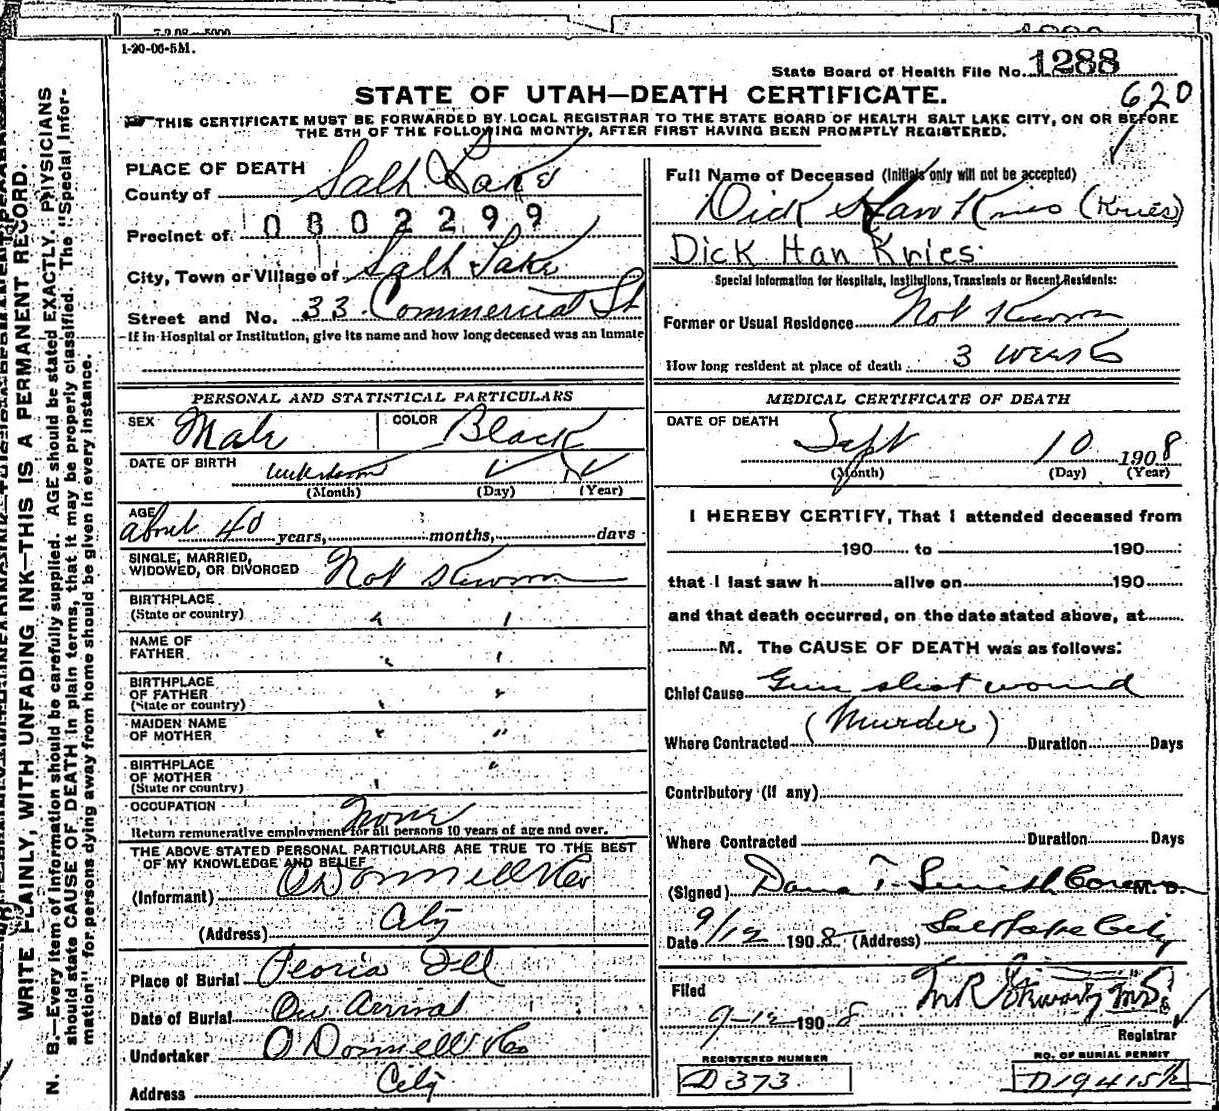 1-20-06-5M.
State Board of Health File No. 1288
620
STATE OF UTAH—DEATH CERTIFICATE.
THIS CERTIFICATE MUST BE FORWARDED BY LOCAL REGISTRAR TO THE STATE BOARD OF HEALTH SALT LAKE CITY, ON OR BEFORE
THE 5TH OF THE FOLLOWING MONTH, AFTER FIRST HAVING BEEN PROMPTLY REGISTERED.
WRITE PLAINLY, WITH UNFADING INK—THIS IS A PERMANENT RECORD.
N. B.—Every item of information should be carefully supplied. AGE should be stated EXACTLY. PHYSICIANS
should state CAUSE OF DEATH in plain terms, that it may be properly classified. The "Special Infor-
mation" for persons dying away from home should be given in every instance.
PLACE OF DEATH
County of Salt Lake
Precinct of 0802299
City, Town or Village of Salt Lake
Street and No. 33 Commercial St
If in Hospital or Institution, give its name and how long deceased was an inmate
Full Name of Deceased (Initials only will not be accepted)
Dick Han Kries (Kries)
Dick Han Kries
Special Information for Hospitals, Institutions, Transients or Recent Residents:
Former or Usual Residence Not Known
How long resident at place of death 3 weeks
PERSONAL AND STATISTICAL PARTICULARS
SEX Male COLOR Black
DATE OF BIRTH unknown
(Month) (Day) (Year)
AGE about 40 years, months, days
SINGLE, MARRIED,
WIDOWED, OR DIVORCED Not Known
BIRTHPLACE
(State or country) " "
NAME OF
FATHER " "
BIRTHPLACE
OF FATHER
(State or country) " "
MAIDEN NAME
OF MOTHER " "
BIRTHPLACE
OF MOTHER
(State or country) " "
OCCUPATION None
Return remunerative employment for all persons 10 years of age and over.
THE ABOVE STATED PERSONAL PARTICULARS ARE TRUE TO THE BEST
OF MY KNOWLEDGE AND BELIEF
(Informant) O'Donnell & Co
(Address) City
Place of Burial Peoria Ill
Date of Burial On Arrival
Undertaker O'Donnell & Co
Address City
MEDICAL CERTIFICATE OF DEATH
DATE OF DEATH
Sept 10 1908
(Month) (Day) (Year)
I HEREBY CERTIFY, That I attended deceased from
190 to 190 :
that I last saw h alive on 190
and that death occurred, on the date stated above, at
M. The CAUSE OF DEATH was as follows:
Chief Cause Gun shot wound
(Murder)
Where Contracted Duration Days
Contributory (if any)
Where Contracted Duration Days
(Signed) Dana T. Smith Coroner M. D.
Date 9/12 1908 (Address) Salt Lake City
Filed
9-12-1908
Registrar
REGISTERED NUMBER
D 373.
NO. OF BURIAL PERMIT
D19415½